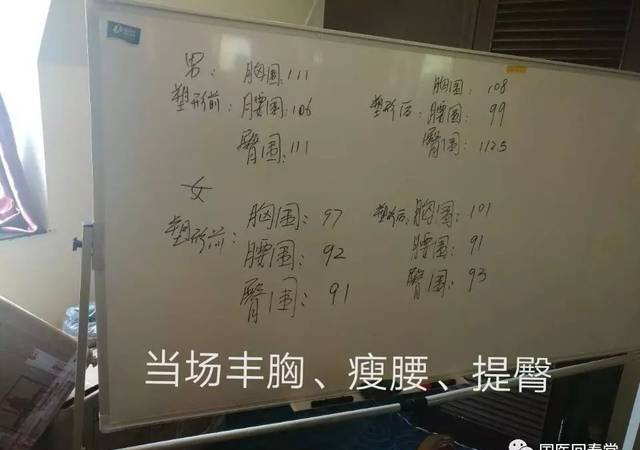 男： 胸围：111
塑形前：腰围：106
臀围：111
胸围：108
塑形后：腰围：99
臀围：112.5
女
塑形前：胸围：97
腰围：92
臀围：91
塑形后：胸围：101
腰围：91
臀围：93
当场丰胸、瘦腰、提臀
国医回春堂